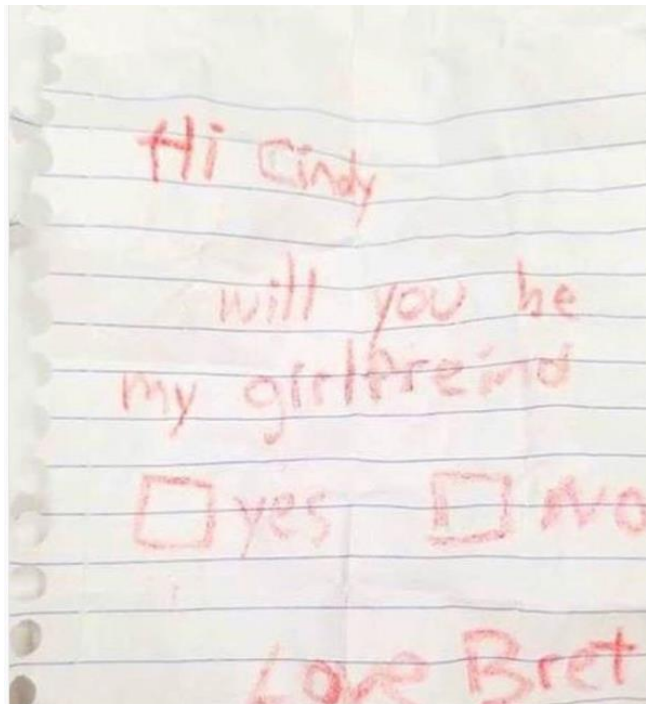 Hi Cindy
will you be
my girlfreind
yes NO
Love Bret